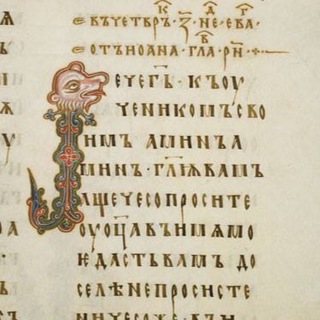 въ четвръ · з҃ · не · ева ·
отъ иоана · гла · рн ·
Рече г҃ъ · къ оу
ченикомъ сво
имъ аминъ а
минъ гл҃ѭ вамъ
аще чесо просите
оу оц҃а въ имѧ мо
ѥ дастъ вамъ до
селѣ не просисте
ничесоже въ